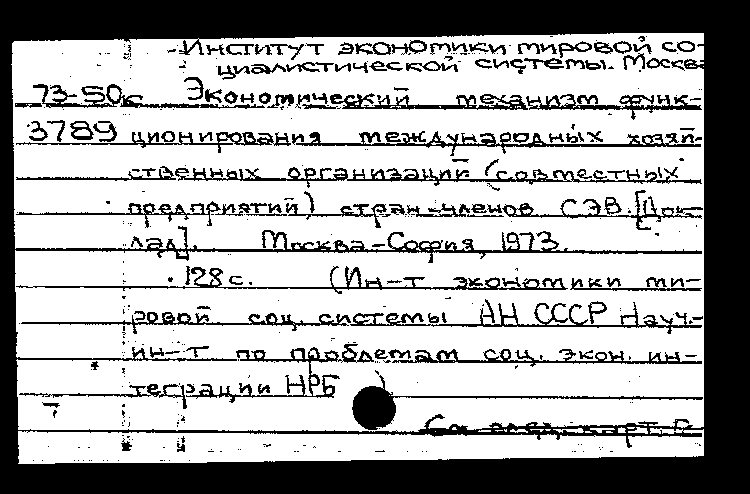 Институт экономики мировой со-
циалистической системы. Москва
73-50с Экономический механизм функ-
3789 ционирования международных хозяй-
ственных организаций (совместных
предприятий) стран-членов СЭВ. [Док-
лад]. Москва-София, 1973.
128 с. (Ин-т экономики ми-
ровой соц. системы АН СССР Науч.-
ин-т по проблемам соц. экон. ин-
теграции НРБ )
См след. карт.